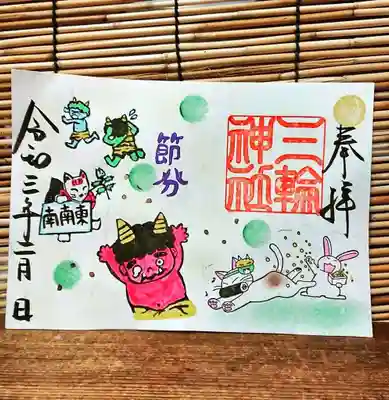 奉拝
三輪
神社
節分
南南東
令和三年二月 日